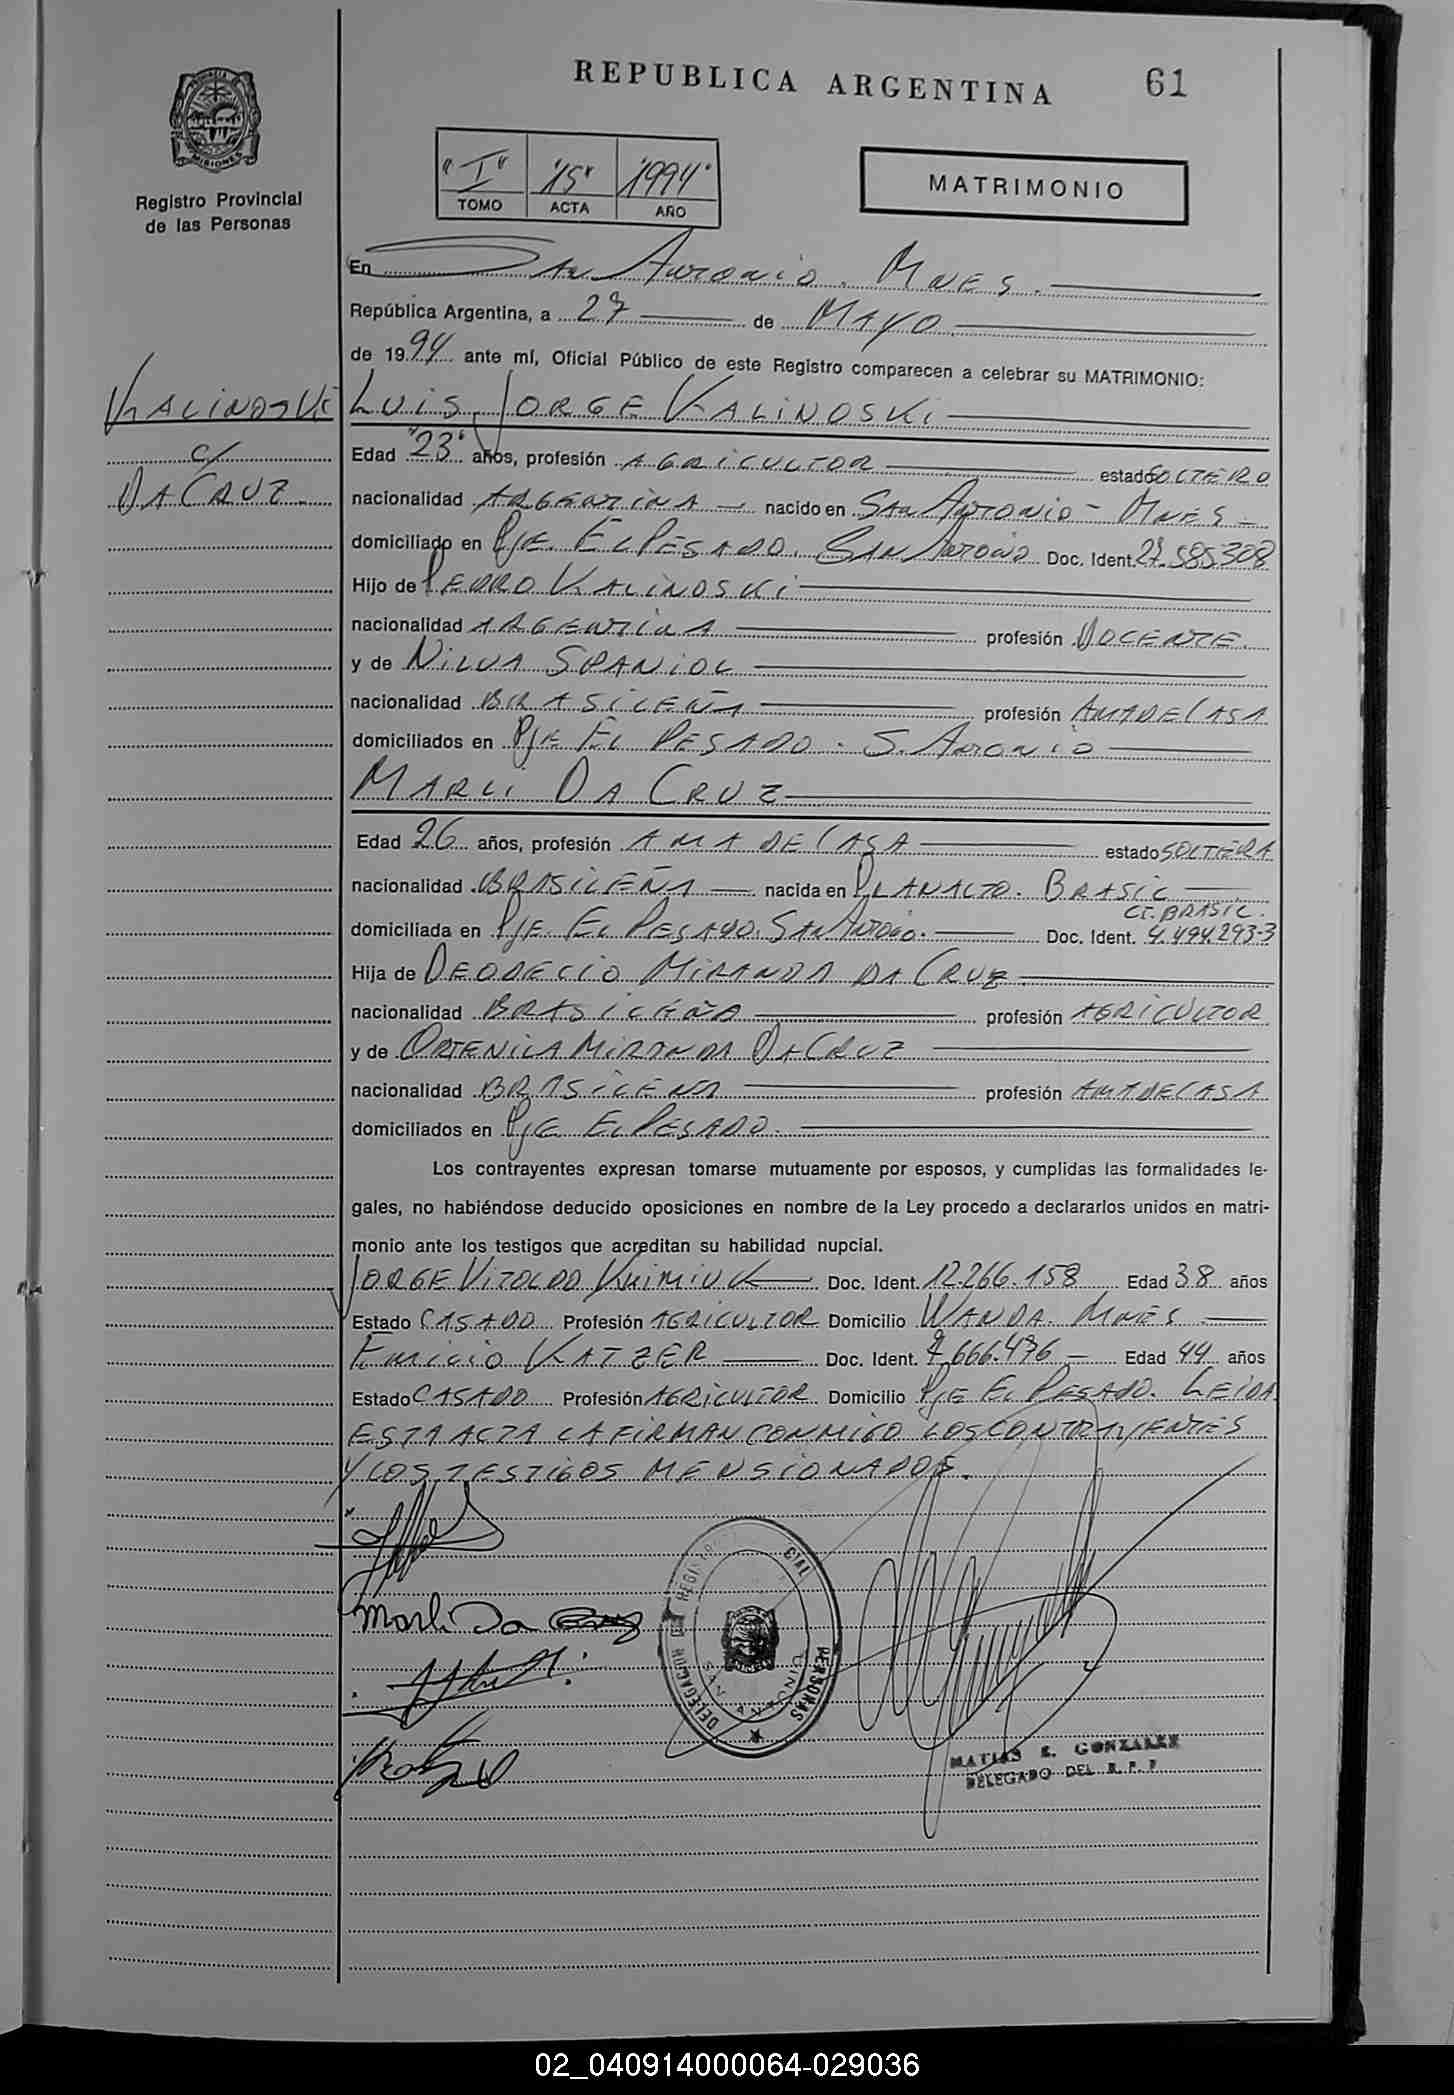 REPUBLICA ARGENTINA
61
PROVINCIA DE
MISIONES
Registro Provincial
de las Personas
"I" "15" "1994"
TOMO ACTA AÑO
MATRIMONIO
En San Antonio. Mnes.
República Argentina, a 27 de Mayo
de 1994 ante mí, Oficial Público de este Registro comparecen a celebrar su MATRIMONIO:
KALINOSKI
c/
DA CRUZ
LUIS JORGE KALINOSKI
Edad "23" años, profesión AGRICULTOR estado SOLTERO
nacionalidad ARGENTINA nacido en SAN ANTONIO - MNES -
domiciliado en PJE. EL PESADO. SAN ANTONIO Doc. Ident. 27.585308
Hijo de PEDRO KALINOSKI
nacionalidad ARGENTINA profesión DOCENTE.
y de NILVA SPANIOL
nacionalidad BRASILEÑA profesión AMA DE CASA
domiciliados en PJE EL PESADO. S. ANTONIO
MARLI DA CRUZ
Edad 26 años, profesión AMA DE CASA estado SOLTERA
nacionalidad BRASILEÑA nacida en PLANALTO. BRASIL
CI. BRASIL.
domiciliada en PJE. EL PESADO. SAN ANTONIO. Doc. Ident. 4.494.293-3
Hija de DEODECIO MIRANDA DA CRUZ
nacionalidad BRASILEÑA profesión AGRICULTOR
y de ORTENILA MIRANDA DA CRUZ
nacionalidad BRASILEÑA profesión AMA DE CASA
domiciliados en PJE EL PESADO.
Los contrayentes expresan tomarse mutuamente por esposos, y cumplidas las formalidades le-
gales, no habiéndose deducido oposiciones en nombre de la Ley procedo a declararlos unidos en matri-
monio ante los testigos que acreditan su habilidad nupcial.
JORGE VITOLDO KNIMIUK Doc. Ident. 12.266.158 Edad 38 años
Estado CASADO Profesión AGRICULTOR Domicilio WANDA. MNES
EMILIO KATZER Doc. Ident. 7.666.476 - Edad 44 años
Estado CASADO Profesión AGRICULTOR Domicilio PJE EL PESADO. LEIDA
ESTA ACTA LA FIRMAN CONMIGO LOS CONTRAYENTES
Y LOS TESTIGOS MENSIONADOS.
Marli Da Cruz
DELEGACION REGISTRO CIAL PERSONAS
SAN ANTONIO
MATIAS E. GONZALEZ
DELEGADO DEL R. P. P
02_040914000064-029036